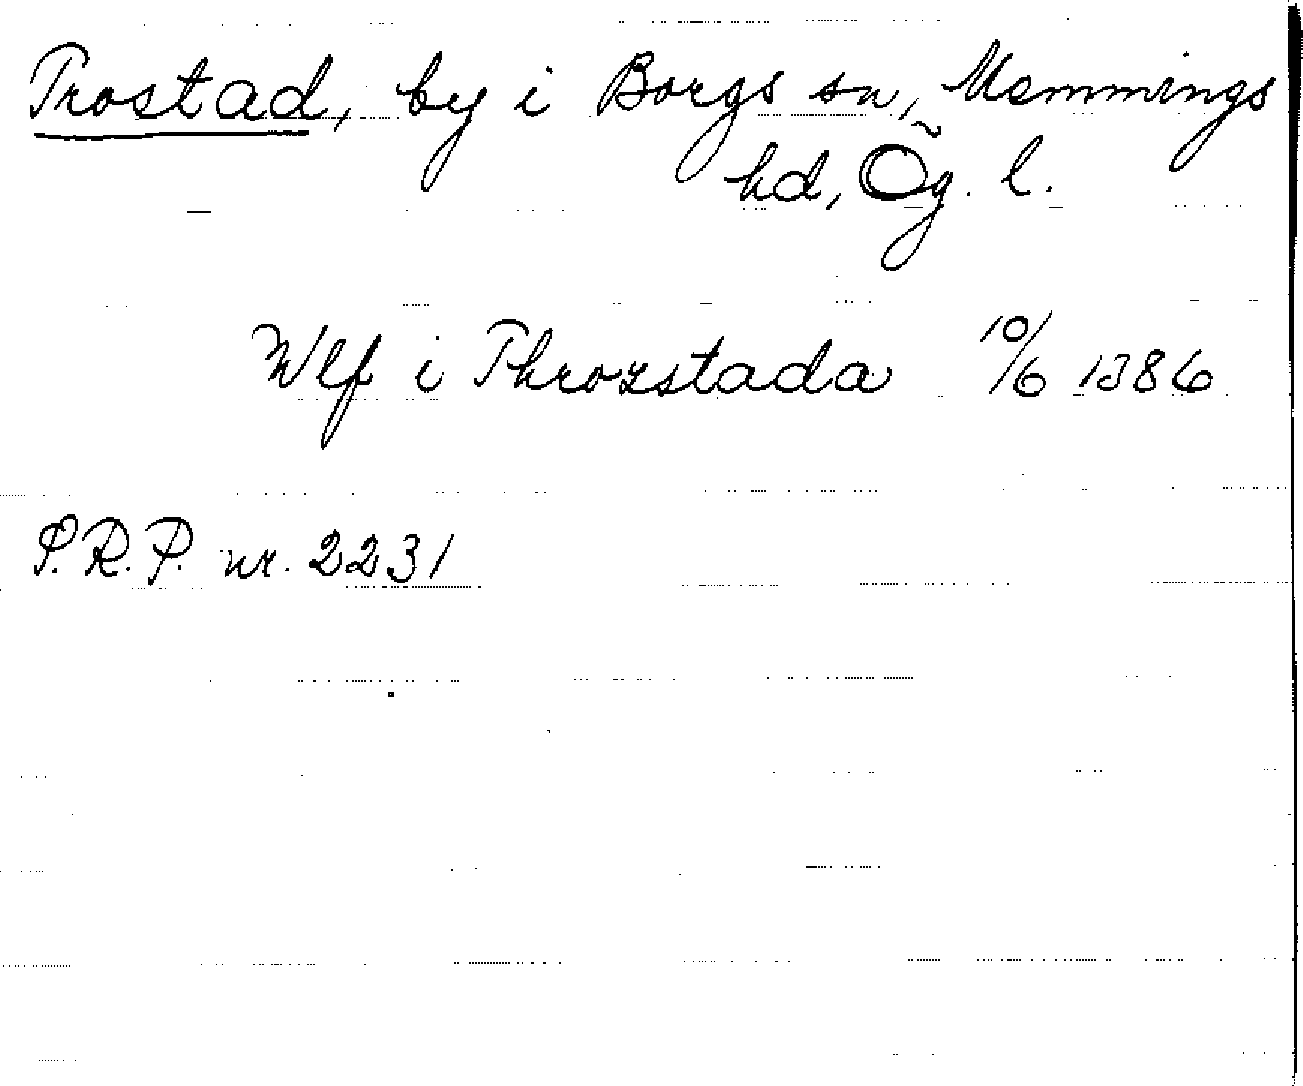 Trostad, by i Borgs sn, Memmings
hd, Ög. l.
Wlf i Throzstada 10/6 1386
P.R.P. nr. 2231